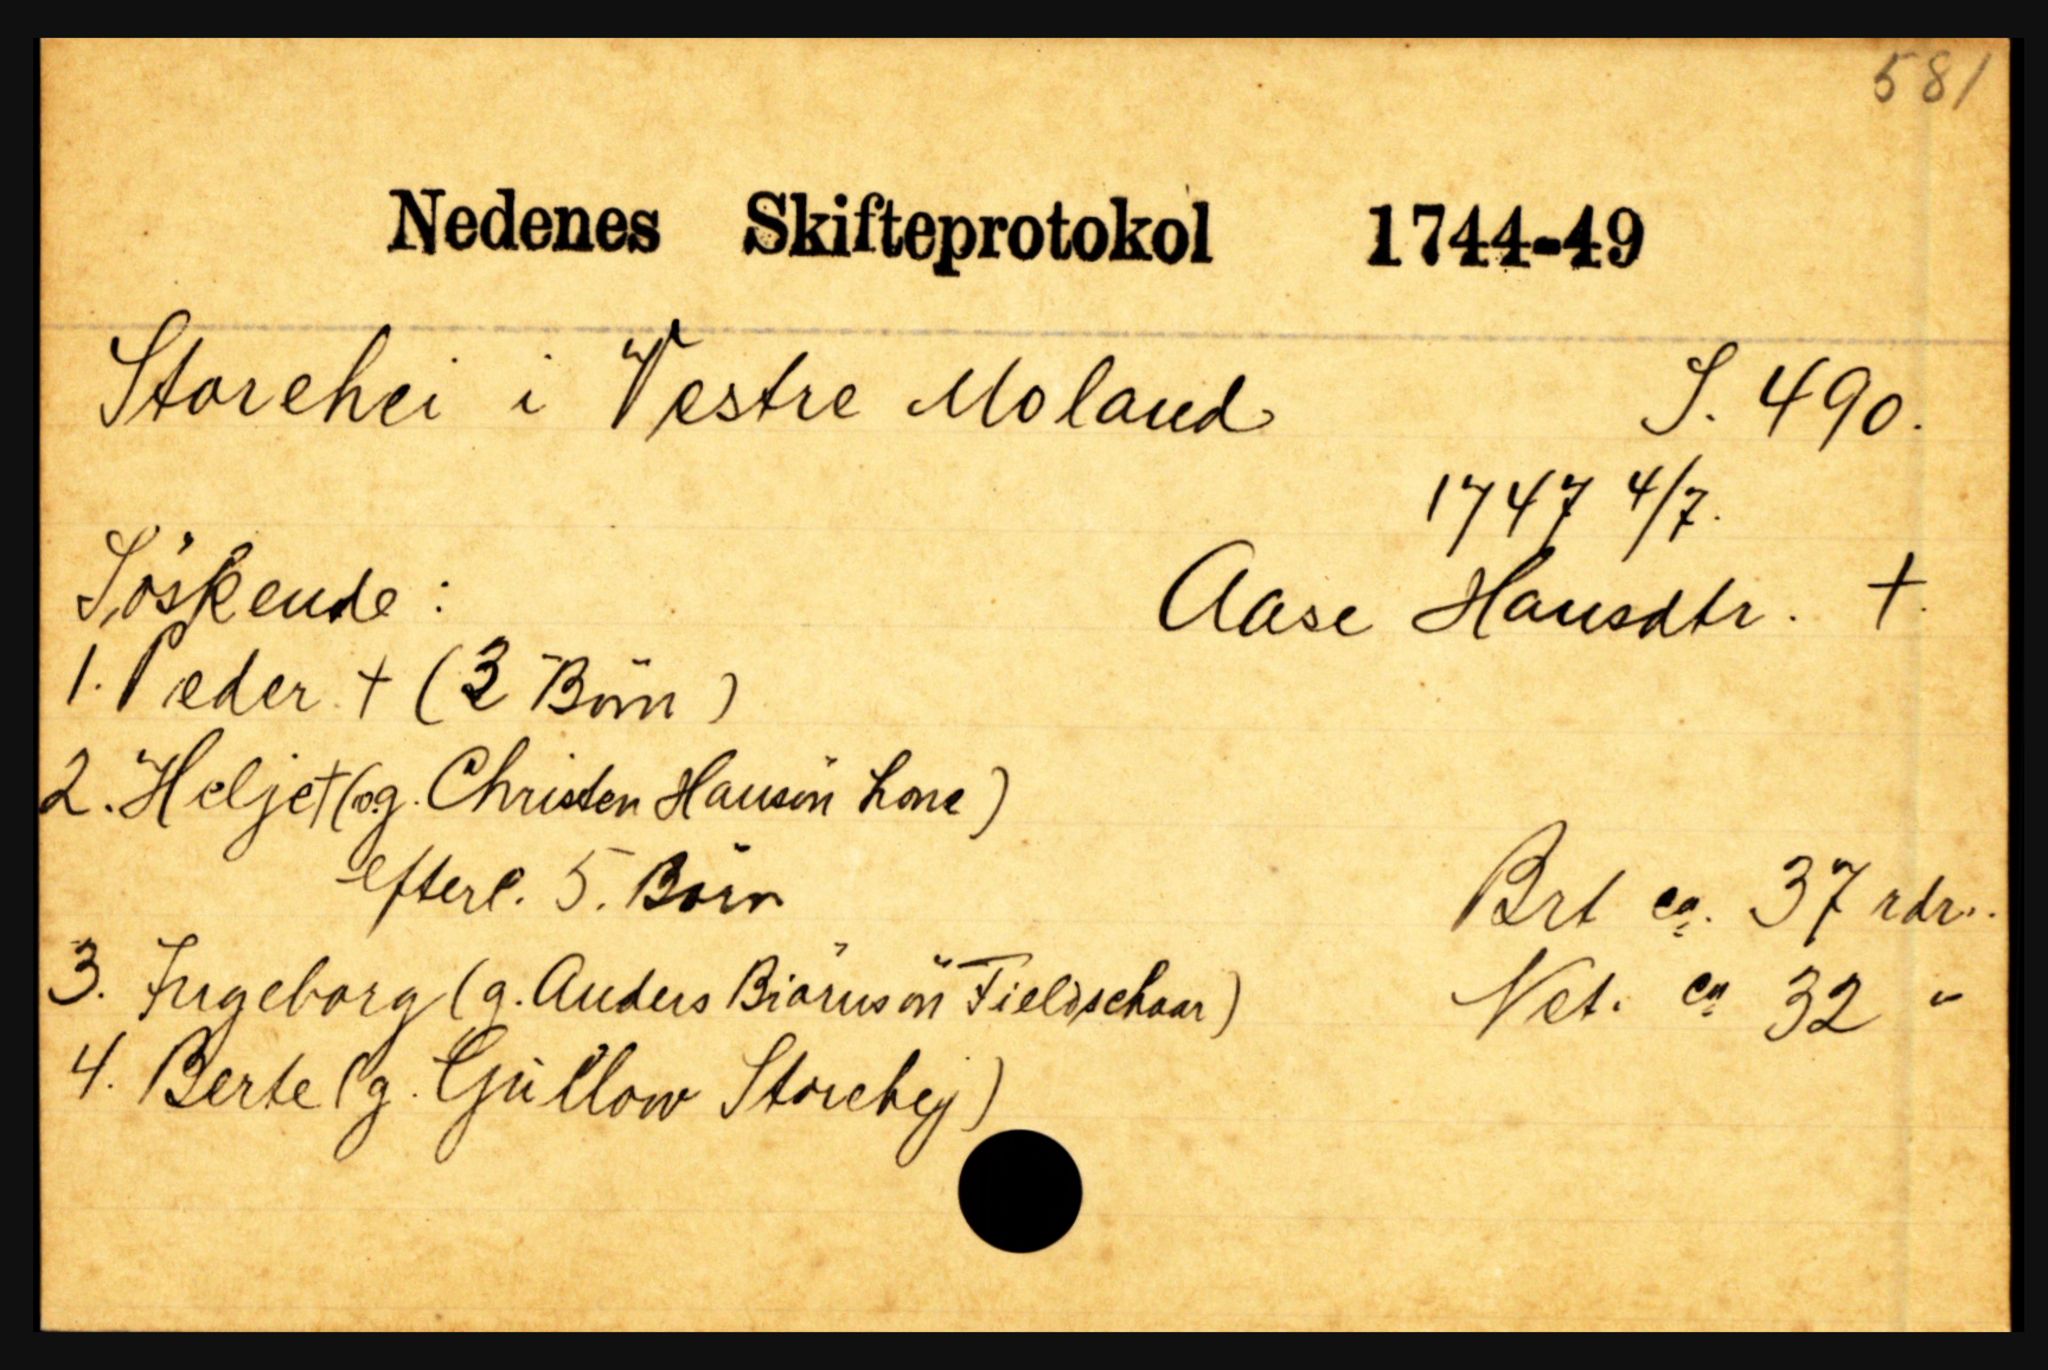 581
Nedenes Skifteprotokol 1744-49
Storehei i Vestre Moland S. 490.
1747 4/7.
Söskende: Aase Hansdtr. †.
1. Peder † (3 Börn)
2. Helje † (og. Christen Hansön Lone)
efterl. 5. Börn Brt ca. 37 rdr.
3. Ingeborg (g. Anders Biörnsön Fieldschaar) Net. ca 32 "
4. Berte (g. Gullow Storehej)